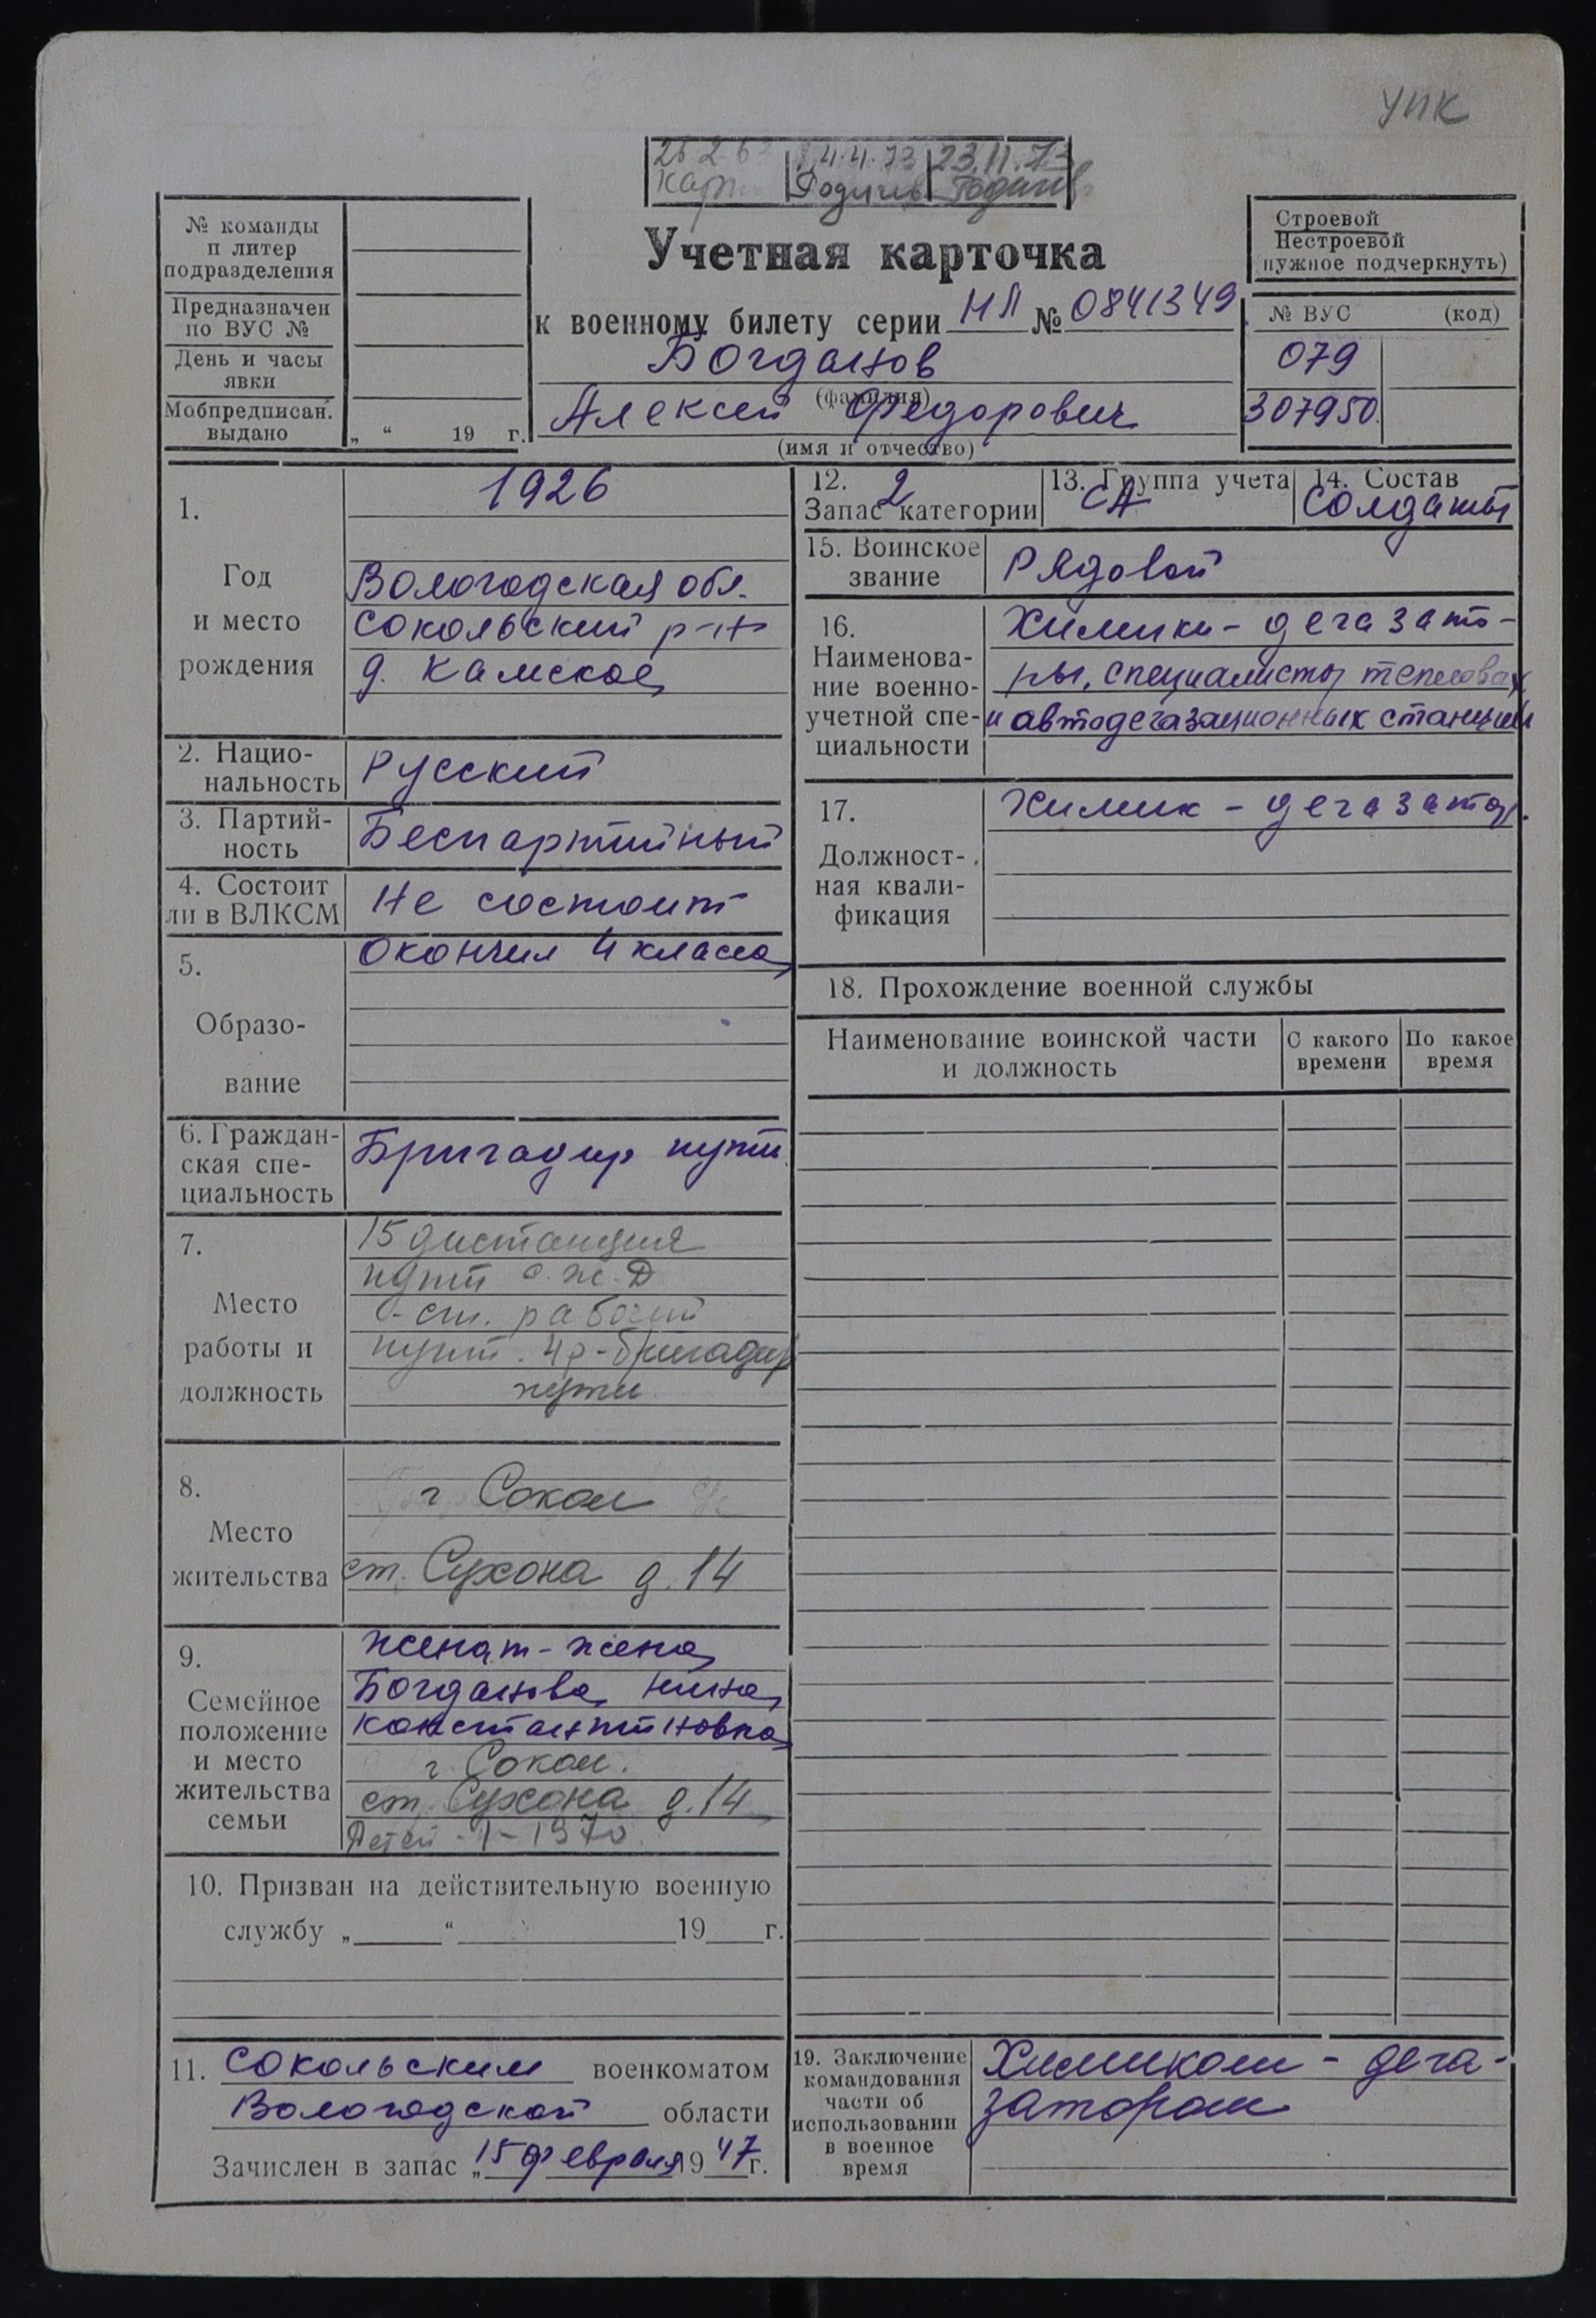 УПК
26 2 6
4.4.73
23.11.73
Родичев
Родичев
№ команды
п литер
подразделения
Предназначен
по ВУС №
День и часы
явки
Мобпредписан.
выдано
„ “ 19 г.
Учетная карточка
к военному билету серии НЛ № 0841349
Богданов
(фамилия)
Алексей Федорович
(имя и отчество)
Строевой
Нестроевой
нужное подчеркнуть)
№ ВУС (код)
079
307950
1.
Год
и место
рождения
1926
Вологодская обл.
Сокольский р-н
д. Камское
2. Нацио-
нальность
Русский
3. Партий-
ность
Беспартийный
4. Состоит
ли в ВЛКСМ
Не состоит
5.
Образо-
вание
Окончил 4 класса
6. Граждан-
ская спе-
циальность
Бригадир пути
7.
Место
работы и
должность
15 дистанция
пути с.ж.Д
ст. рабочий
пункт. 4р-бригадир
пути
8.
Место
жительства
г Сокол
ст. Сухона д. 14
9.
Семейное
положение
и место
жительства
семьи
женат - жена
Богданова Нина
Константиновна
г. Сокол.
ст. Сухона д. 14
Детей - 1 - 1970
10. Призван на действительную военную
службу „ “ 19 г.
11. Сокольским военкоматом
Вологодской области
Зачислен в запас „15 февраля 1947г.
12. 2
Запас категории
13. Группа учета
СА
14. Состав
Солдаты
15. Воинское
звание
Рядовой
16.
Наименова-
ние военно-
учетной спе-
циальности
Химики - дегазато-
ры, специалисты тепловых
и автодегазационных станций
17.
Должност-
ная квали-
фикация
Химик - дегазатор.
18. Прохождение военной службы
Наименование воинской части
и должность
С какого
времени
По какое
время
19. Заключение
командования
части об
использовании
в военное
время
Химиком - дега-
затором